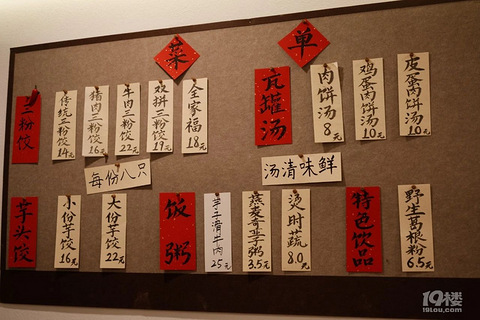 菜
单
三粉饺
传统三粉饺 14元
猪肉三粉饺 16元
牛肉三粉饺 22元
双拼三粉饺 19元
全家福 18元
瓦罐汤
肉饼汤 8元
鸡蛋肉饼汤 10元
皮蛋肉饼汤 10元
每份八只
汤清味鲜
芋头饺
小份芋饺 16元
大份芋饺 22元
饭粥
芋子滑牛肉 25元
燕麦奇亚孚粥 3.5元
烫时蔬 8.0元
特色饮品
野生葛根粉 6.5元
19楼
19lou.com